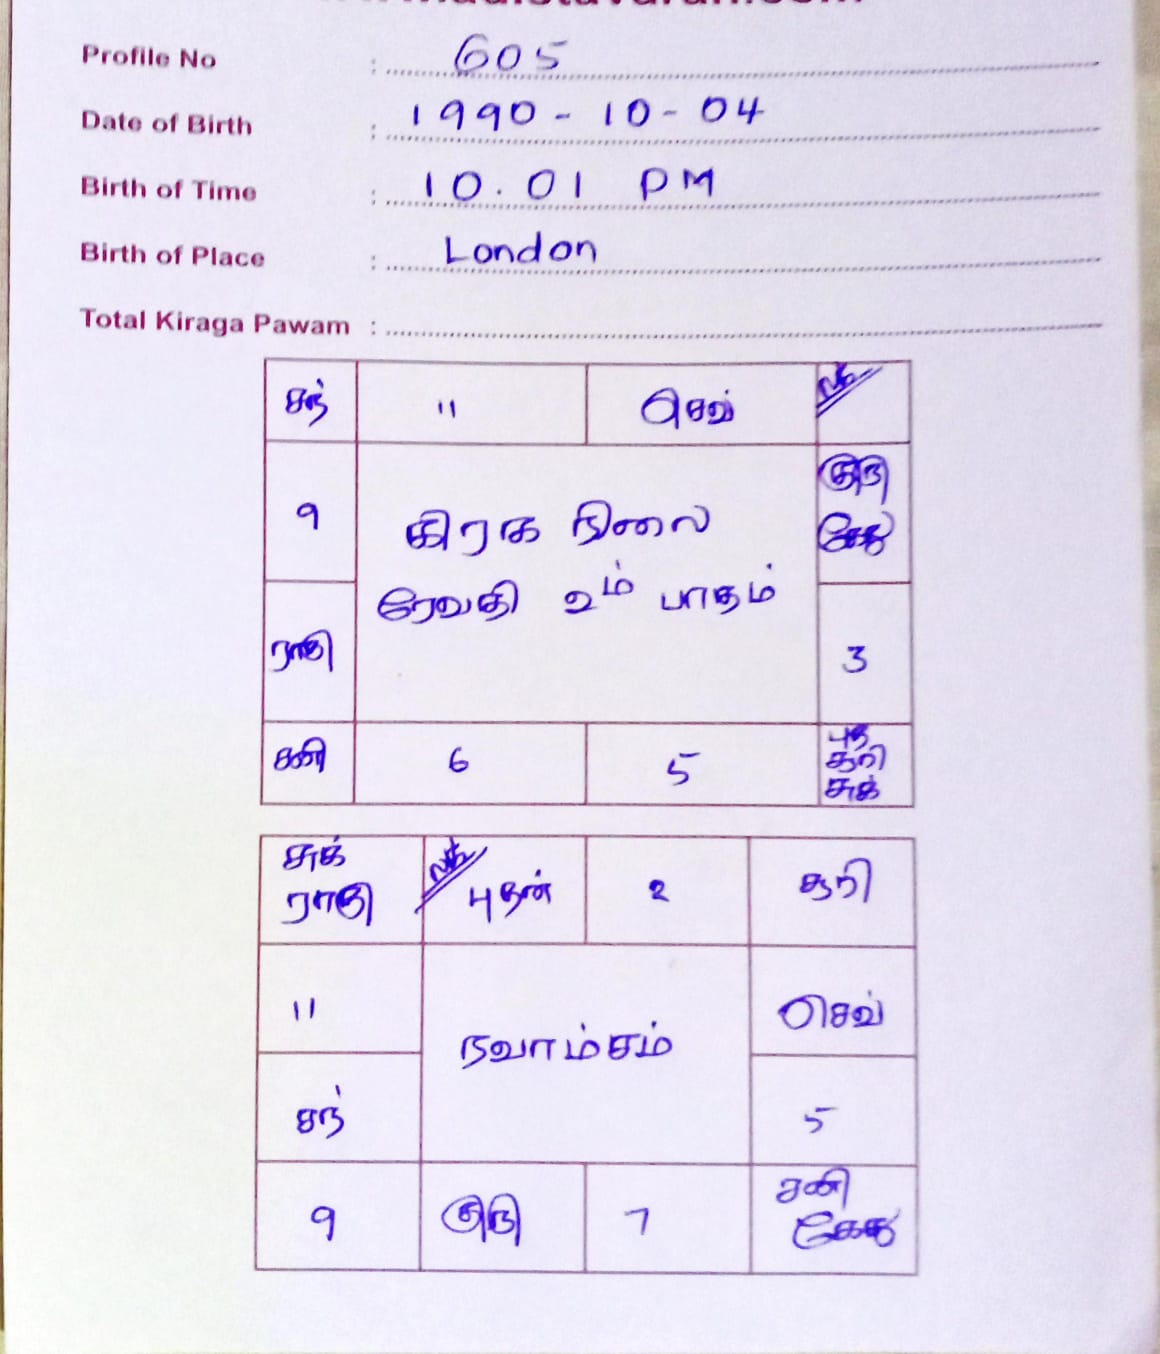 Profile No : 605
Date of Birth : 1990 - 10 - 04
Birth of Time : 10.01 PM
Birth of Place : London
Total Kiraga Pawam :
சந் 11 செவ் ல
குரு
கேது
9
கிரக நிலை
ரேவதி 2ம் பாதம்
ராகு
3
சனி 6 5
புத
சூரி
சுக்
சுக்
ராகு
ல புதன் 2 சூரி
11
செவ்
நவாம்சம்
சந்
5
9 குரு 7
சனி
கேது